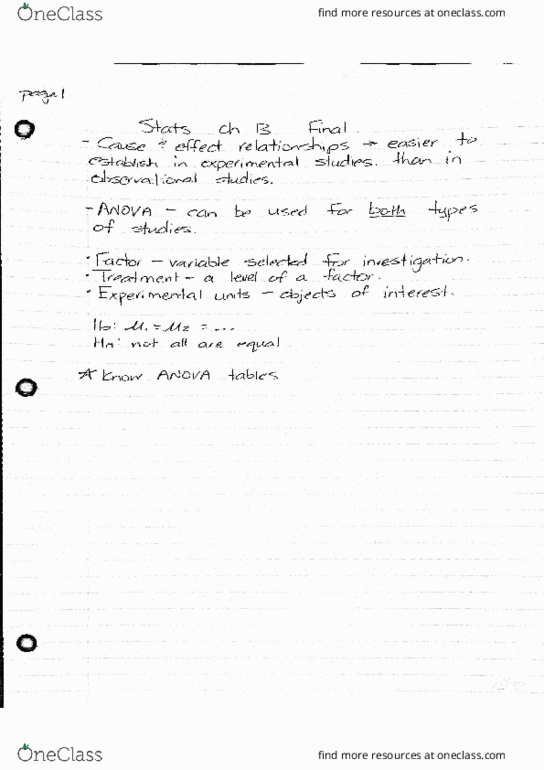 OneClass
find more resources at oneclass.com
page 1
Stats ch 13 Final
- Cause & effect relationships → easier to
establish in experimental studies. than in
observational studies.
- ANOVA - can be used for both types
of studies.
· Factor - variable selected for investigation.
· Treatment - a level of a factor.
· Experimental units - objects of interest.
H₀: μ₁ = μ₂ = ...
Ha: not all are equal
* Know ANOVA tables
OneClass
find more resources at oneclass.com